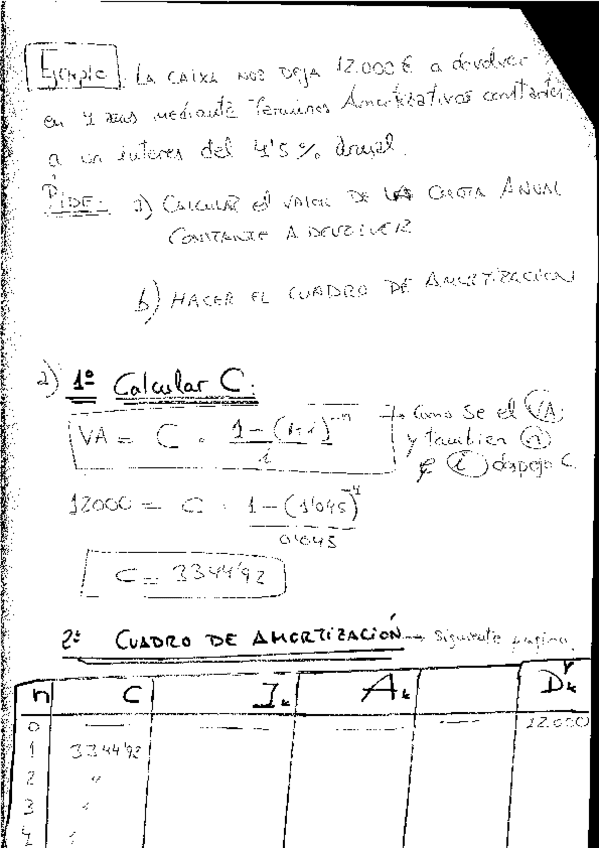 Ejemplo. La Caixa nos deja 12.000€ a devolver
en 4 años mediante Terminos Amortizativos constantes
a un interes del 4'5% anual.
PIDE: a) CALCULAR el VALOR DE LA CUOTA ANUAL
CONSTANTE A DEVOLVER
b) HACER EL CUADRO DE AMORTIZACION
a) 1º Calcular C:
VA = C · 1-(1+i)^-n / i → Como se el VA;
y tambien n
e i despejo C.
12000 = C · 1-(1'045)^-4 / 0'045
C = 3344'92
2º CUADRO DE AMORTIZACIÓN → Siguiente pagina
n C Ik Ak Dk
0 — — — — 12.000
1 3344'92
2 "
3 "
4 "